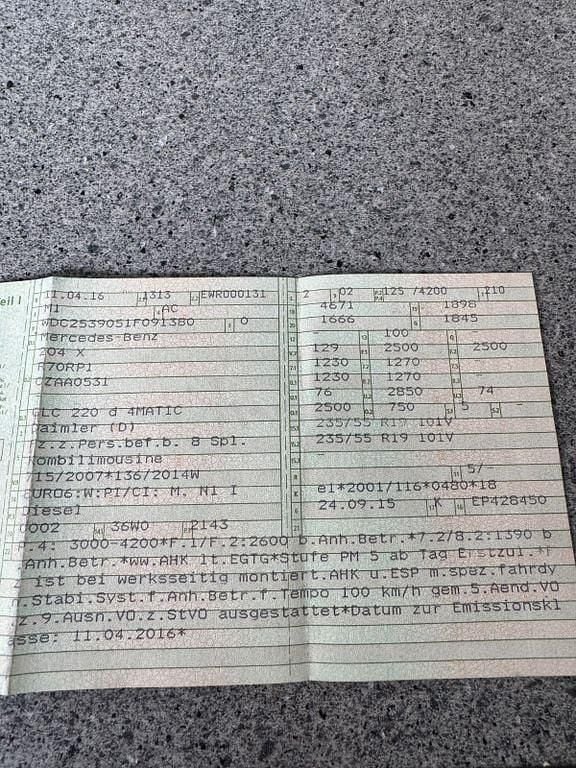 eil I
11.04.16 1313 EWR000131 2 02 125 /4200 210
M1 AC 4671 1898
WDC2539051F091380 0 1666 1845
Mercedes-Benz - 100
204 X 129 2500 2500
R70RP1 1230 1270 -
CZAA0531 1230 1270 -
76 2850 74
GLC 220 d 4MATIC 2500 750 5 -
Daimler (D) 235/55 R19 101V
z.z.Pers.bef.b. 8 Spl. 235/55 R19 101V
Kombilimousine -
715/2007*136/2014W 5/-
EURO6:W:PI/CI: M, N1 I e1*2001/116*0480*18
Diesel 24.09.15 K EP428450
0002 36W0 2143
P.4: 3000-4200*F.1/F.2:2600 b.Anh.Betr.*7.2/8.2:1390 b
.Anh.Betr.*ww.AHK lt.EGTG*Stufe PM 5 ab Tag Erstzul.*f
ist bei werksseitig montiert.AHK u.ESP m.spez.fahrdy
n.Stabi.Syst.f.Anh.Betr.f.Tempo 100 km/h gem.5.Aend.VO
z.9.Ausn.VO.z.StVO ausgestattet*Datum zur Emissionskl
asse: 11.04.2016*